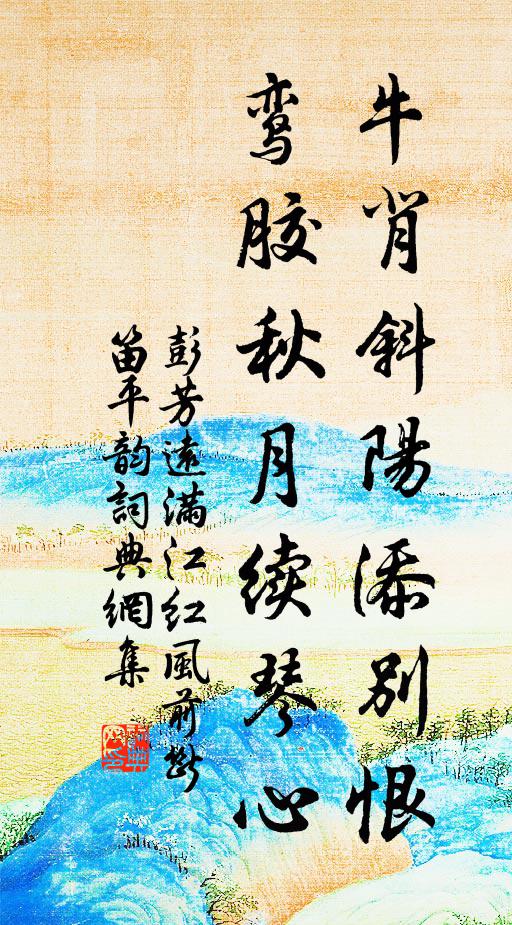 牛背斜陽添别恨
鸾胶秋月续琴心
彭芳遠滿江红風前斷
笛平韵詞典網集